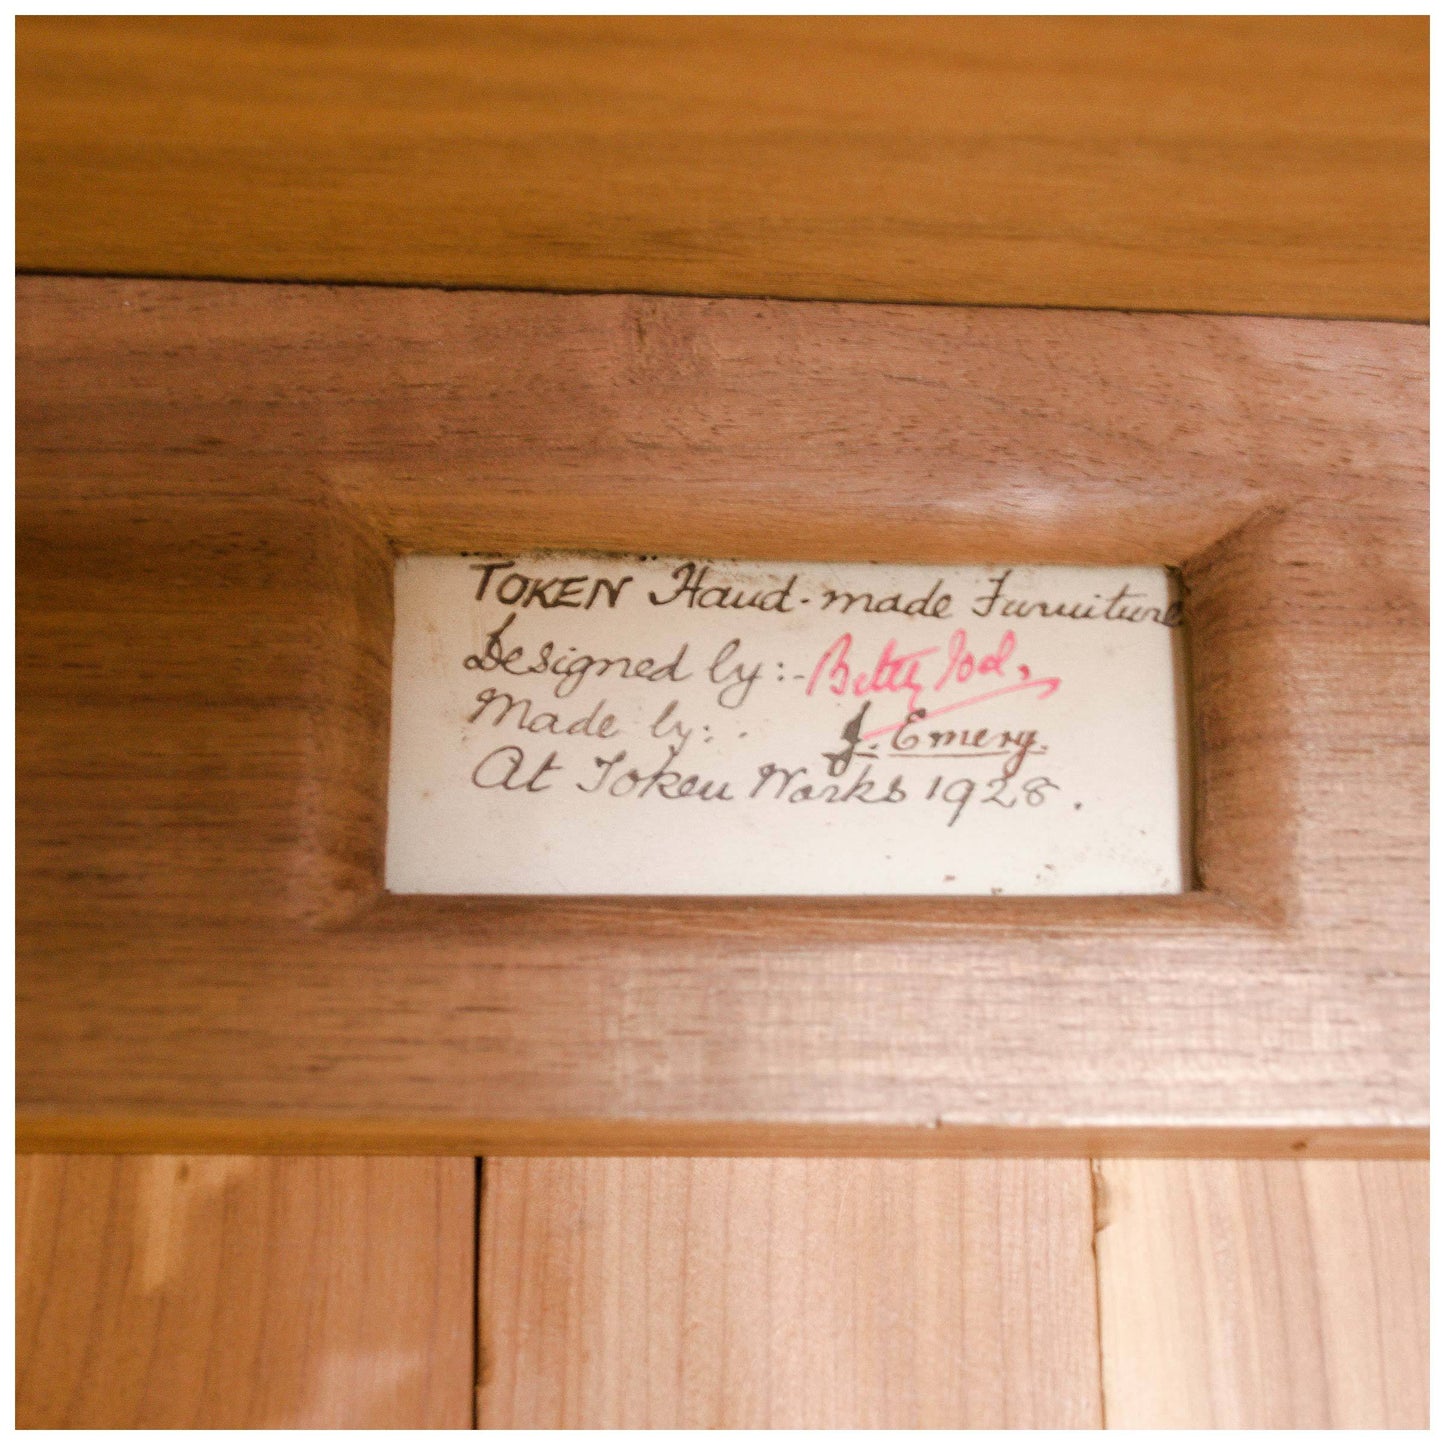 "TOKEN" Hand-made Furniture
Designed by:- Betty Joel,
Made by:- J. Emery.
At Token Works 1928.